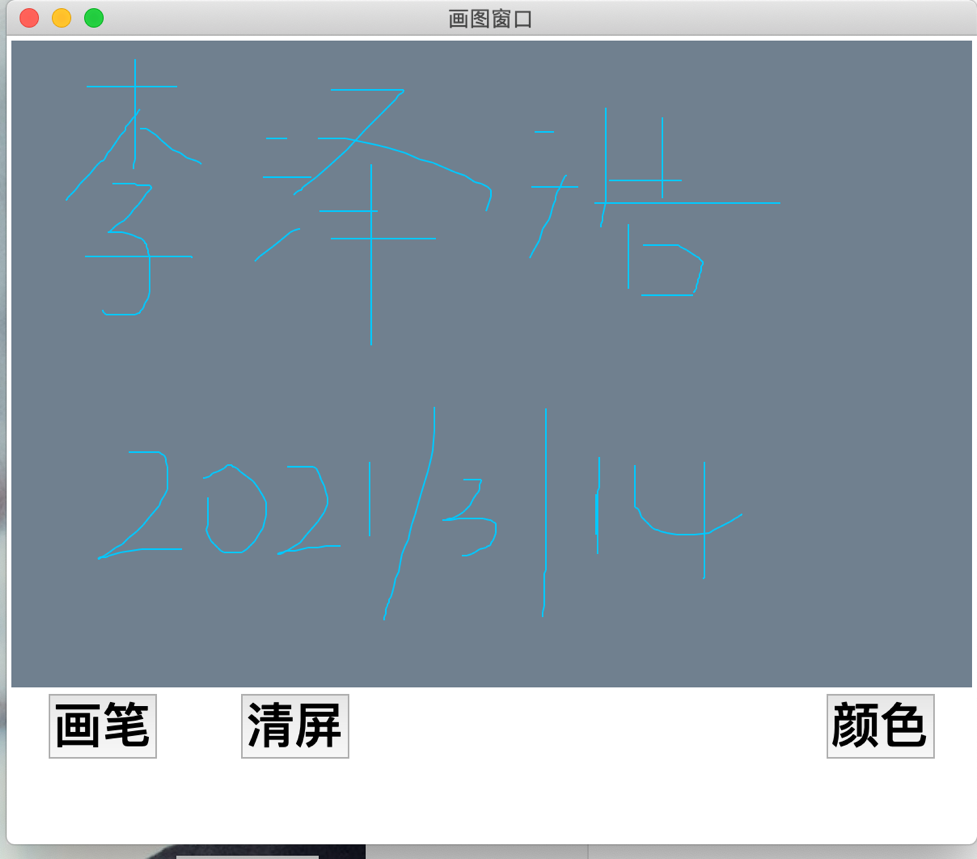 画图窗口
李泽浩
2021/3/14
画笔 清屏 颜色